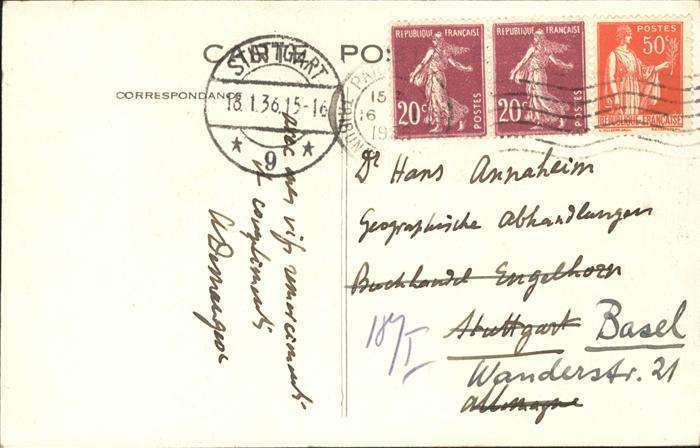 CARTE POS
CORRESPONDANCE
STUTTGART
18.1.36.15-16
* 9 *
PA
15
16
TRIBUN
REPUBLIQUE FRANÇAISE
20c
POSTES
REPUBLIQUE FRANÇAISE
20c
POSTES
POSTES
50c
REPUBLIQUE FRANÇAISE
avec mes vifs remerciements
et compliments
A Demangeon
Dr Hans Annaheim
Geographische Abhandlungen
Buchhandel Engelhorn
Stuttgart Basel
Wanderstr. 21
Allemagne
18/I